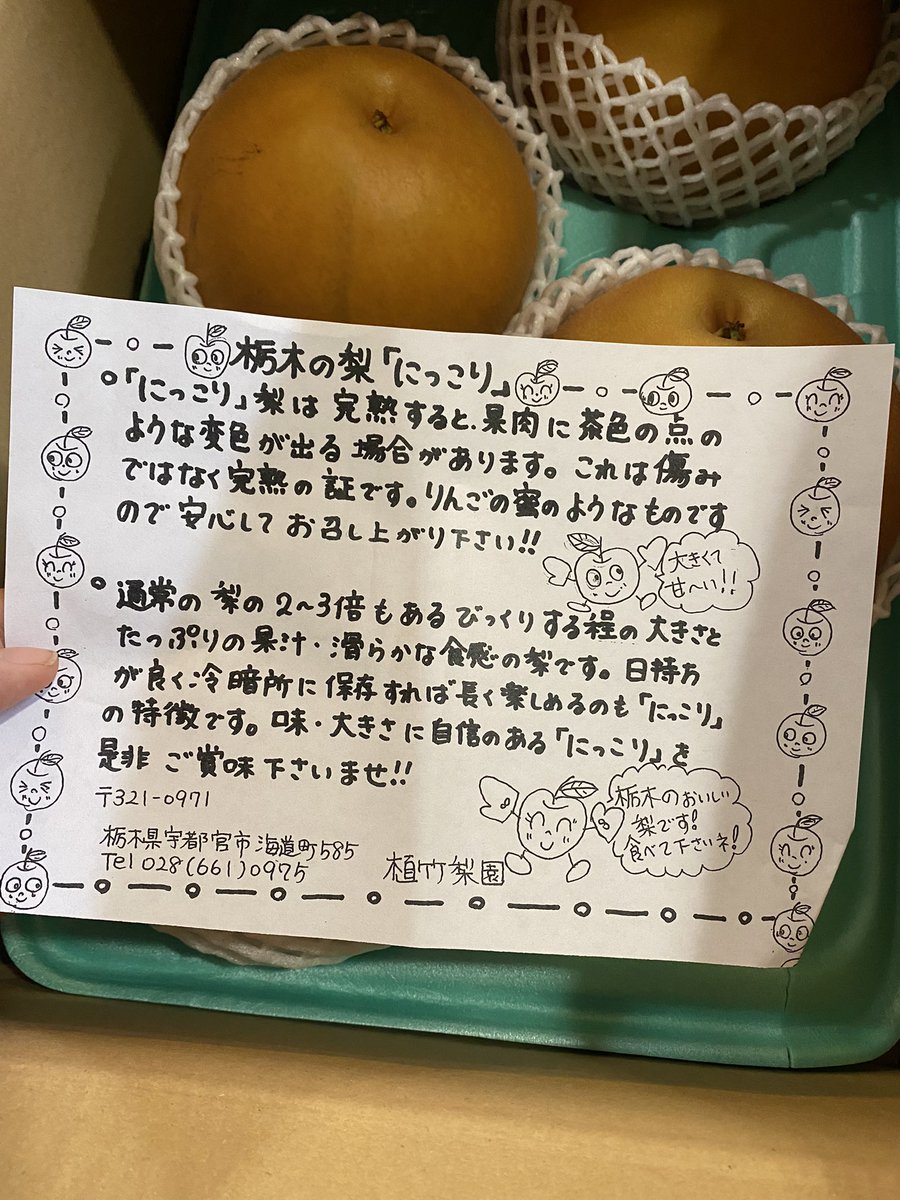 栃木の梨「にっこり」
「にっこり」梨は完熟すると、果肉に茶色の点の
ような変色が出る場合があります。これは傷み
ではなく完熟の証です。りんごの蜜のようなものです
ので安心してお召し上がり下さい!!
大きくて
甘〜い!!
通常の梨の2〜3倍もあるびっくりする程の大きさと
たっぷりの果汁・滑らかな食感の梨です。日持ち
が良く冷暗所に保存すれば長く楽しめるのも「にっこり」
の特徴です。味・大きさに自信のある「にっこり」を
是非ご賞味下さいませ!!
栃木のおいしい
梨です!
食べて下さいネ!
〒321-0971
栃木県宇都宮市海道町585
Tel 028(661)0975
植竹梨園